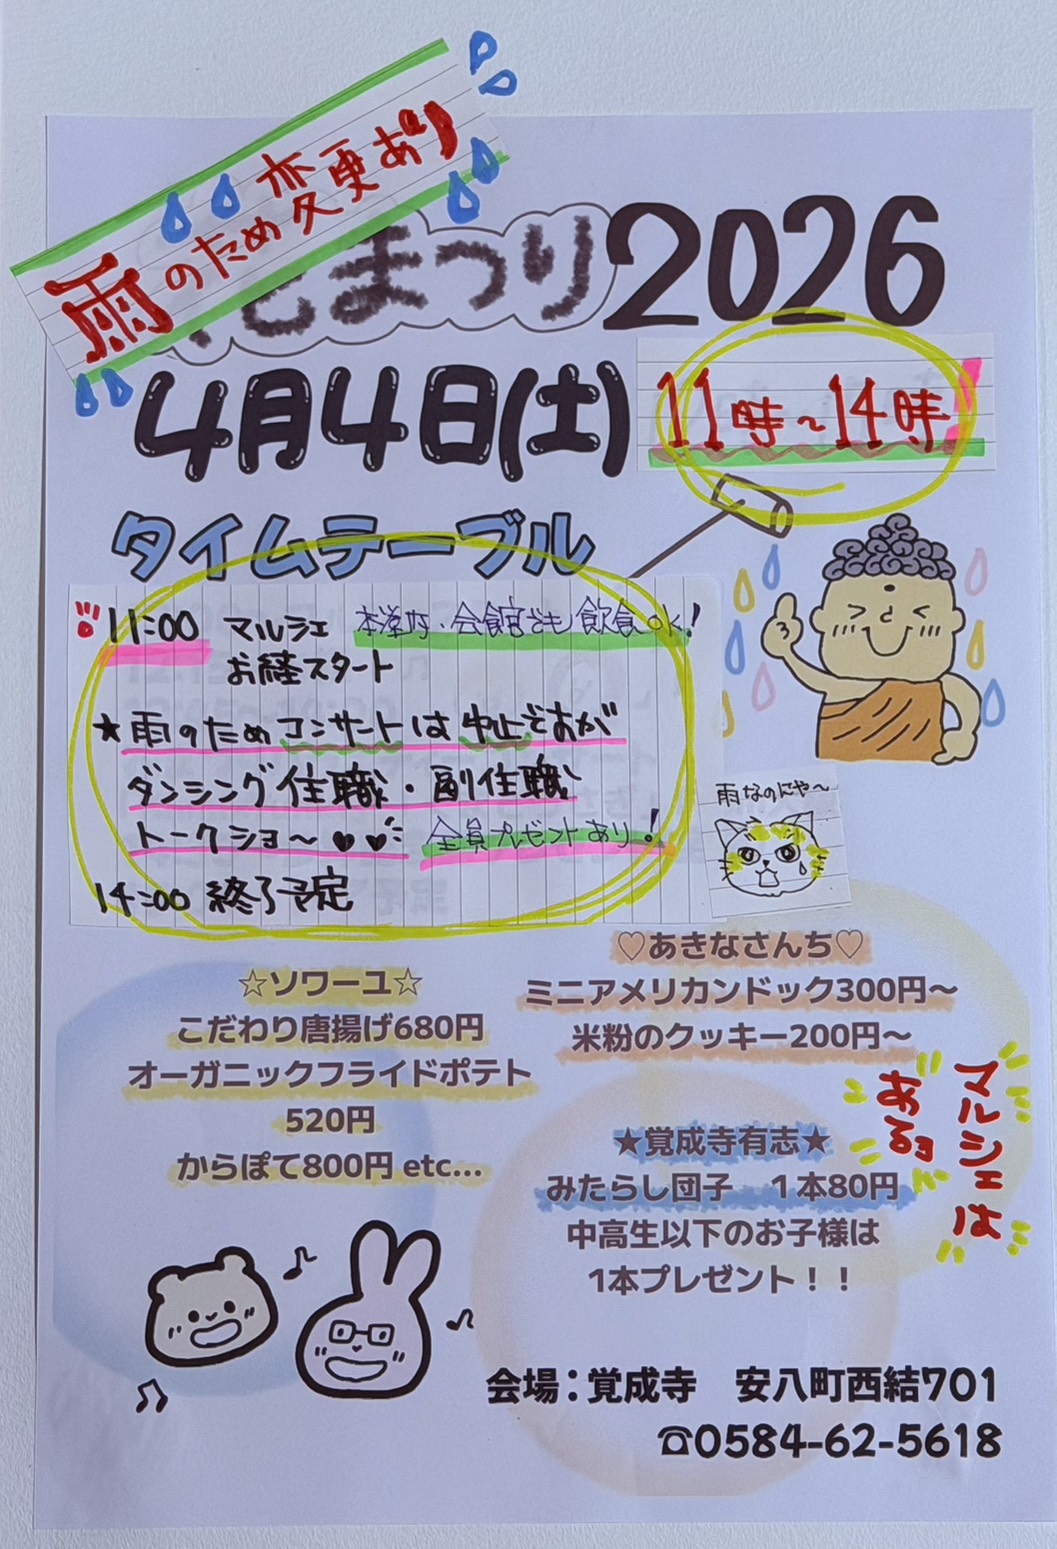 雨のため変更あり
まつり2026
4月4日(土)
11時～14時
タイムテーブル
11:00 マルシェ 本堂内・会館でも飲食OK!
お経スタート
★雨のためコンサートは中止ですが
ダンシング住職・副住職
トークショ～♥♥ 全員プレゼントあり!
14:00 終了予定
雨なのにゃ～
☆ソワーユ☆
こだわり唐揚げ680円
オーガニックフライドポテト
520円
からぽて800円 etc...
♡あきなさんち♡
ミニアメリカンドック300円～
米粉のクッキー200円～
マルシェは
あるョ
★覚成寺有志★
みたらし団子 1本80円
中高生以下のお子様は
1本プレゼント！！
会場：覚成寺 安八町西結701
☎0584-62-5618